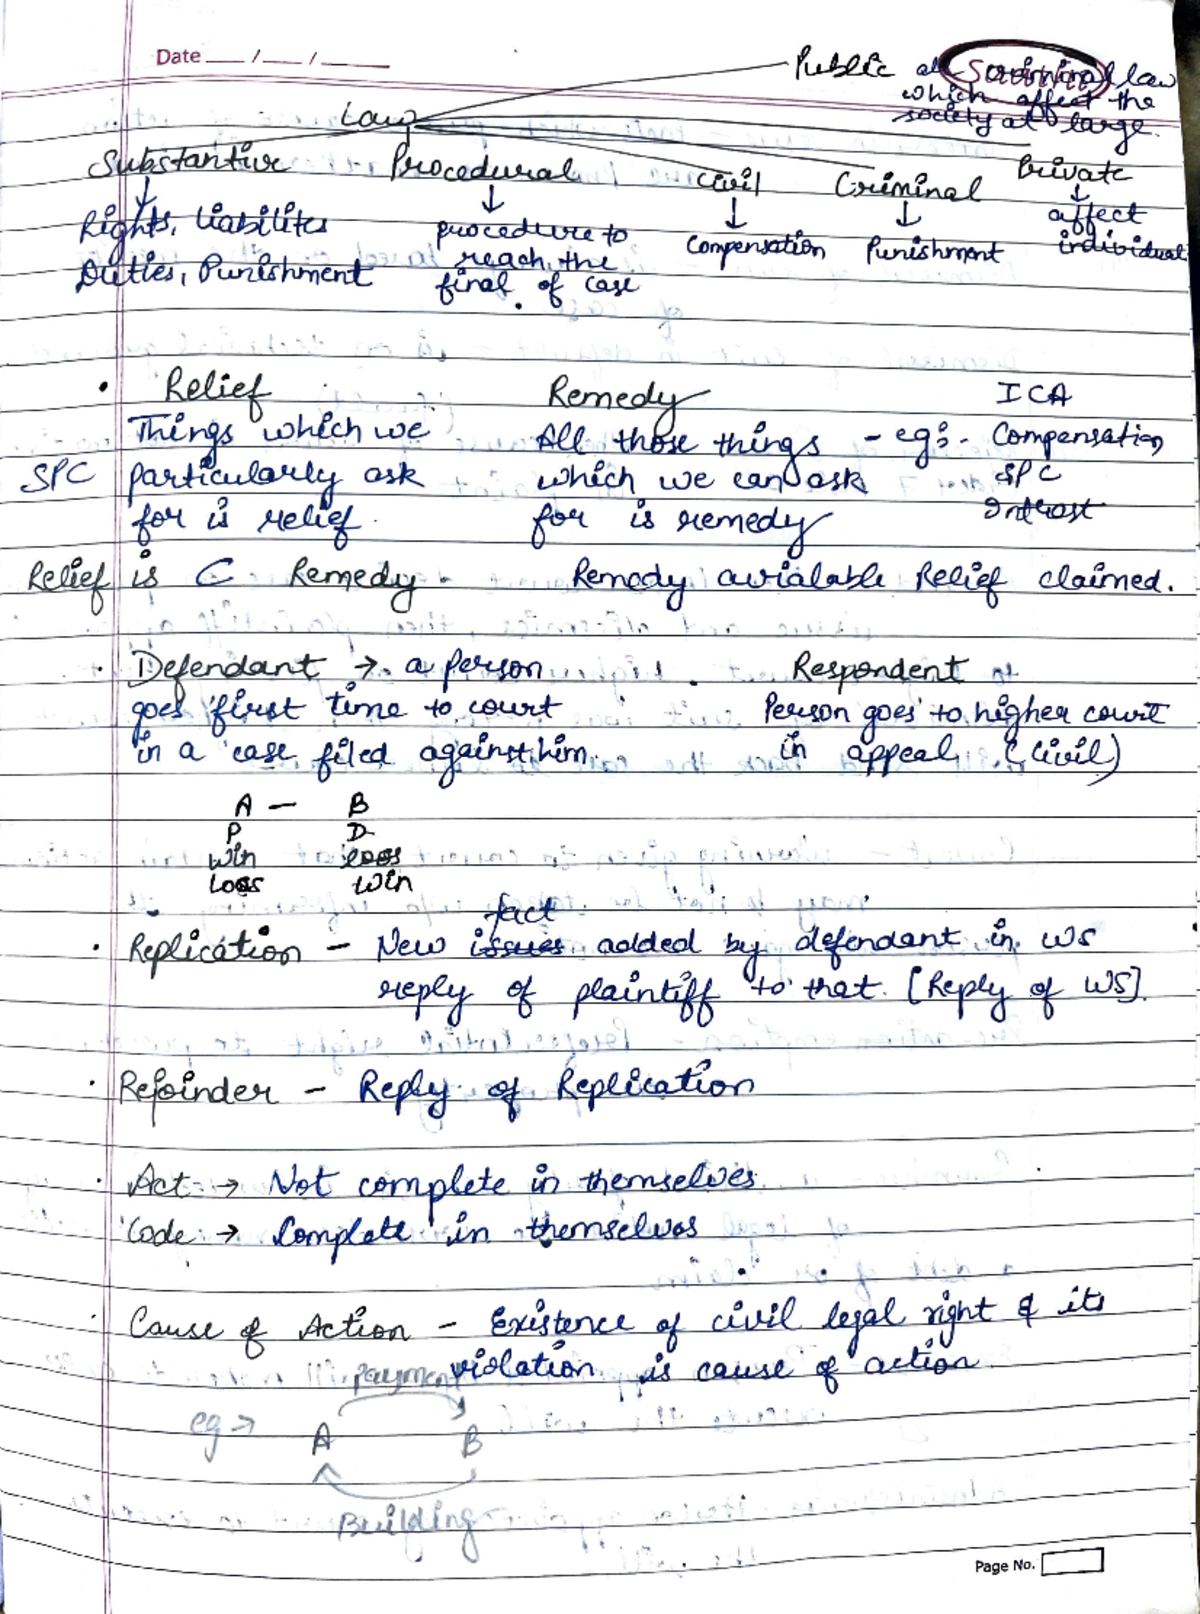 Date ___ / ___ / _____
Public all criminal law
which affect the
society at large.
Law
Substantive Procedural Civil Criminal Private
Rights, liabilites procedure to compensation Punishment affect
Duties, Punishment reach the individual
final of case
• Relief Remedy ICA
Things which we All those things - eg:- Compensation
SPC particularly ask which we can ask SPC
for is relief. for is remedy Intrest
Relief is C Remedy Remedy avialable Relief claimed.
• Defendant → a person Respondent
goes first time to court Person goes to higher court
in a case filed against him. in appeal (Civil)
A — B
P D
Win loss
Loss Win
fact
• Replication - New issues added by defendant in WS
reply of plaintiff to that. [Reply of WS].
• Rejoinder - Reply of Replication
• Act → Not complete in themselves.
Code → Complete in themselves
• Cause of Action - Existence of civil legal right & its
violation is cause of action
payment
eg → A B
Building
Page No.